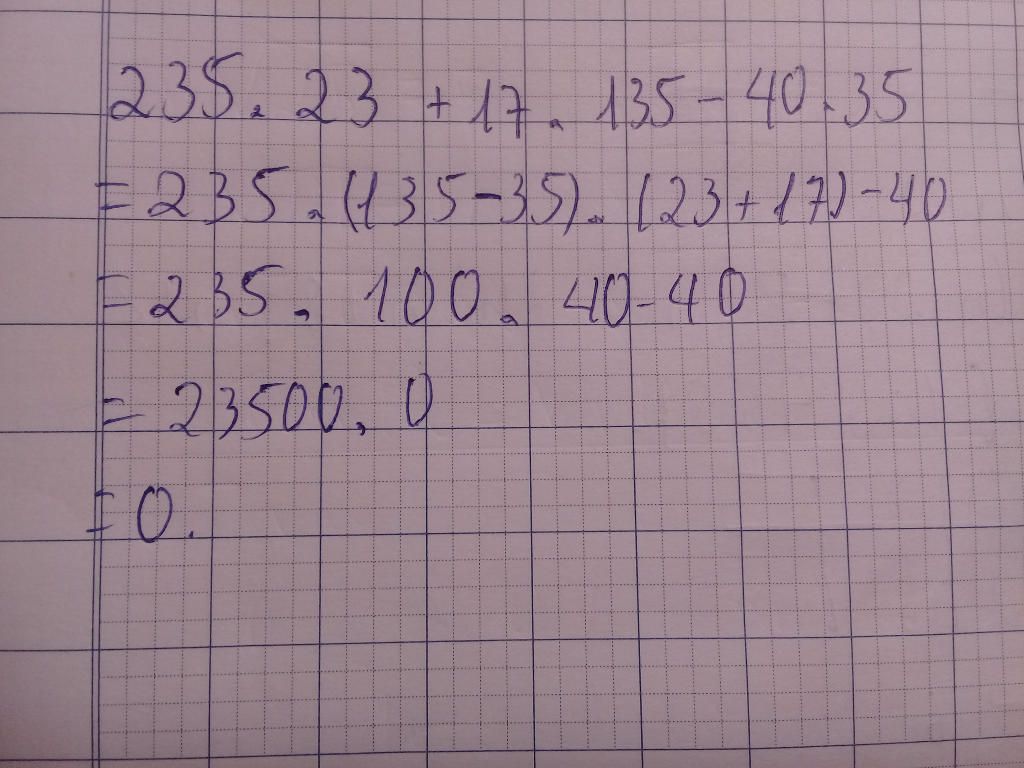 235. 23 + 17. 135 - 40.35
= 235. (135-35). (23+17) - 40
= 235. 100. 40-40
= 23500. 0
= 0.